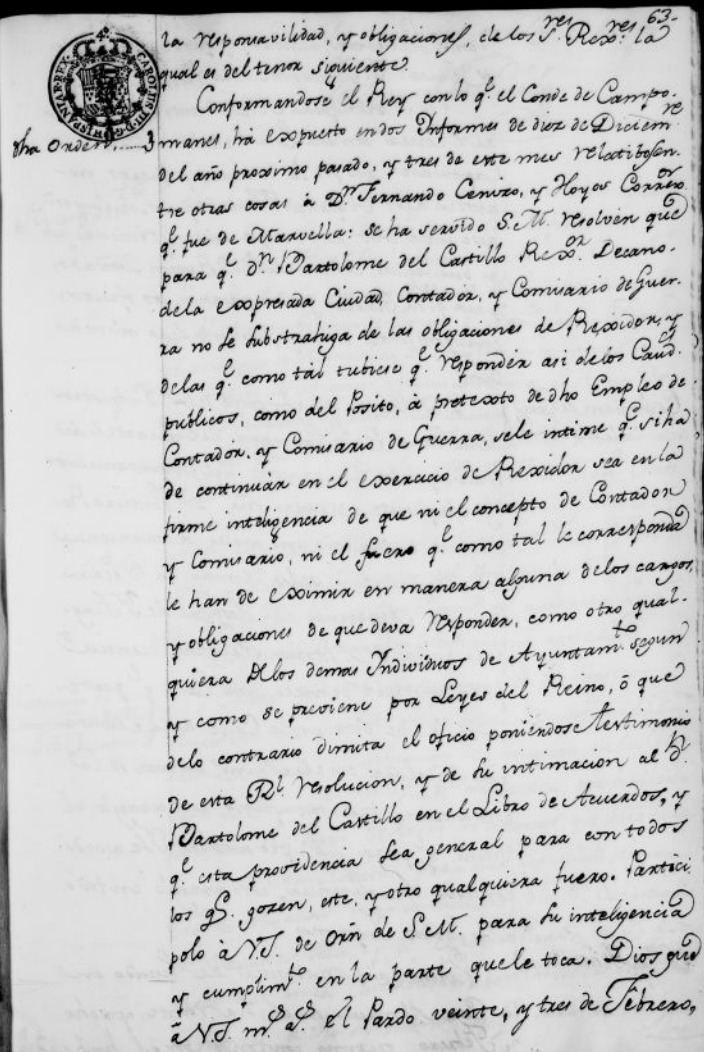 63-
la responsavilidad, y obligaciones, de los S.res Rexo.res la
qual es del tenor siguiente.
Conformandose el Rey con lo q.e el Conde de Campo-
dha Orden......3 manes, há expuesto en dos Informes de diez de Diciem.re
del año proximo pasado, y tres de este mes relatibos en-
tre otras cosas à D.n Fernando Cenizo, y Hoyos Correx.or
q.e fue de Marvella: se ha servido S.M. resolver que
para q.e D.n Bartolome del Castillo Rexo.or Decano-
dela expresada Ciudad, Contador, y Comisario de Guer-
ra no se substrahiga de las obligaciones de Rexidor, y
delas q.e como tál tubiese q.e responder asi de los Caud.s
publicos, como del Posito, à pretexto de dho Empleo de
Contador, y Comisario de Guerra, sele intime q.e si ha
de continuàr en el exercicio de Rexidor sea en la
firme inteligencia de que ni el concepto de Contador
y Comisario, ni el fuero q.e como tal le corresponda
le han de eximir en manera alguna delos cargos,
y obligaciones de que deva responder, como otro qual-
quiera delos demas Individuos de Ayuntam.to segun
y como se previene por Leyes del Reino, ó que
delo contrario dimita el oficio poniendose testimonio
de esta R.l resolucion, y de su intimacion al D.n
Bartolome del Castillo en el Libro de Acuerdos, y
q.e esta providencia sea general para con todos
los q.e gozen, este, y otro qualquiera fuero. Partici
polo à V.S. de Orn de S.M. para su inteligencia
y cumplim.to en la parte que le toca. Dios gue
a V.S. m.s a.s el Pardo veinte, y tres de Febrero,
CAROLUS III D.G. HISPANIAR. REX